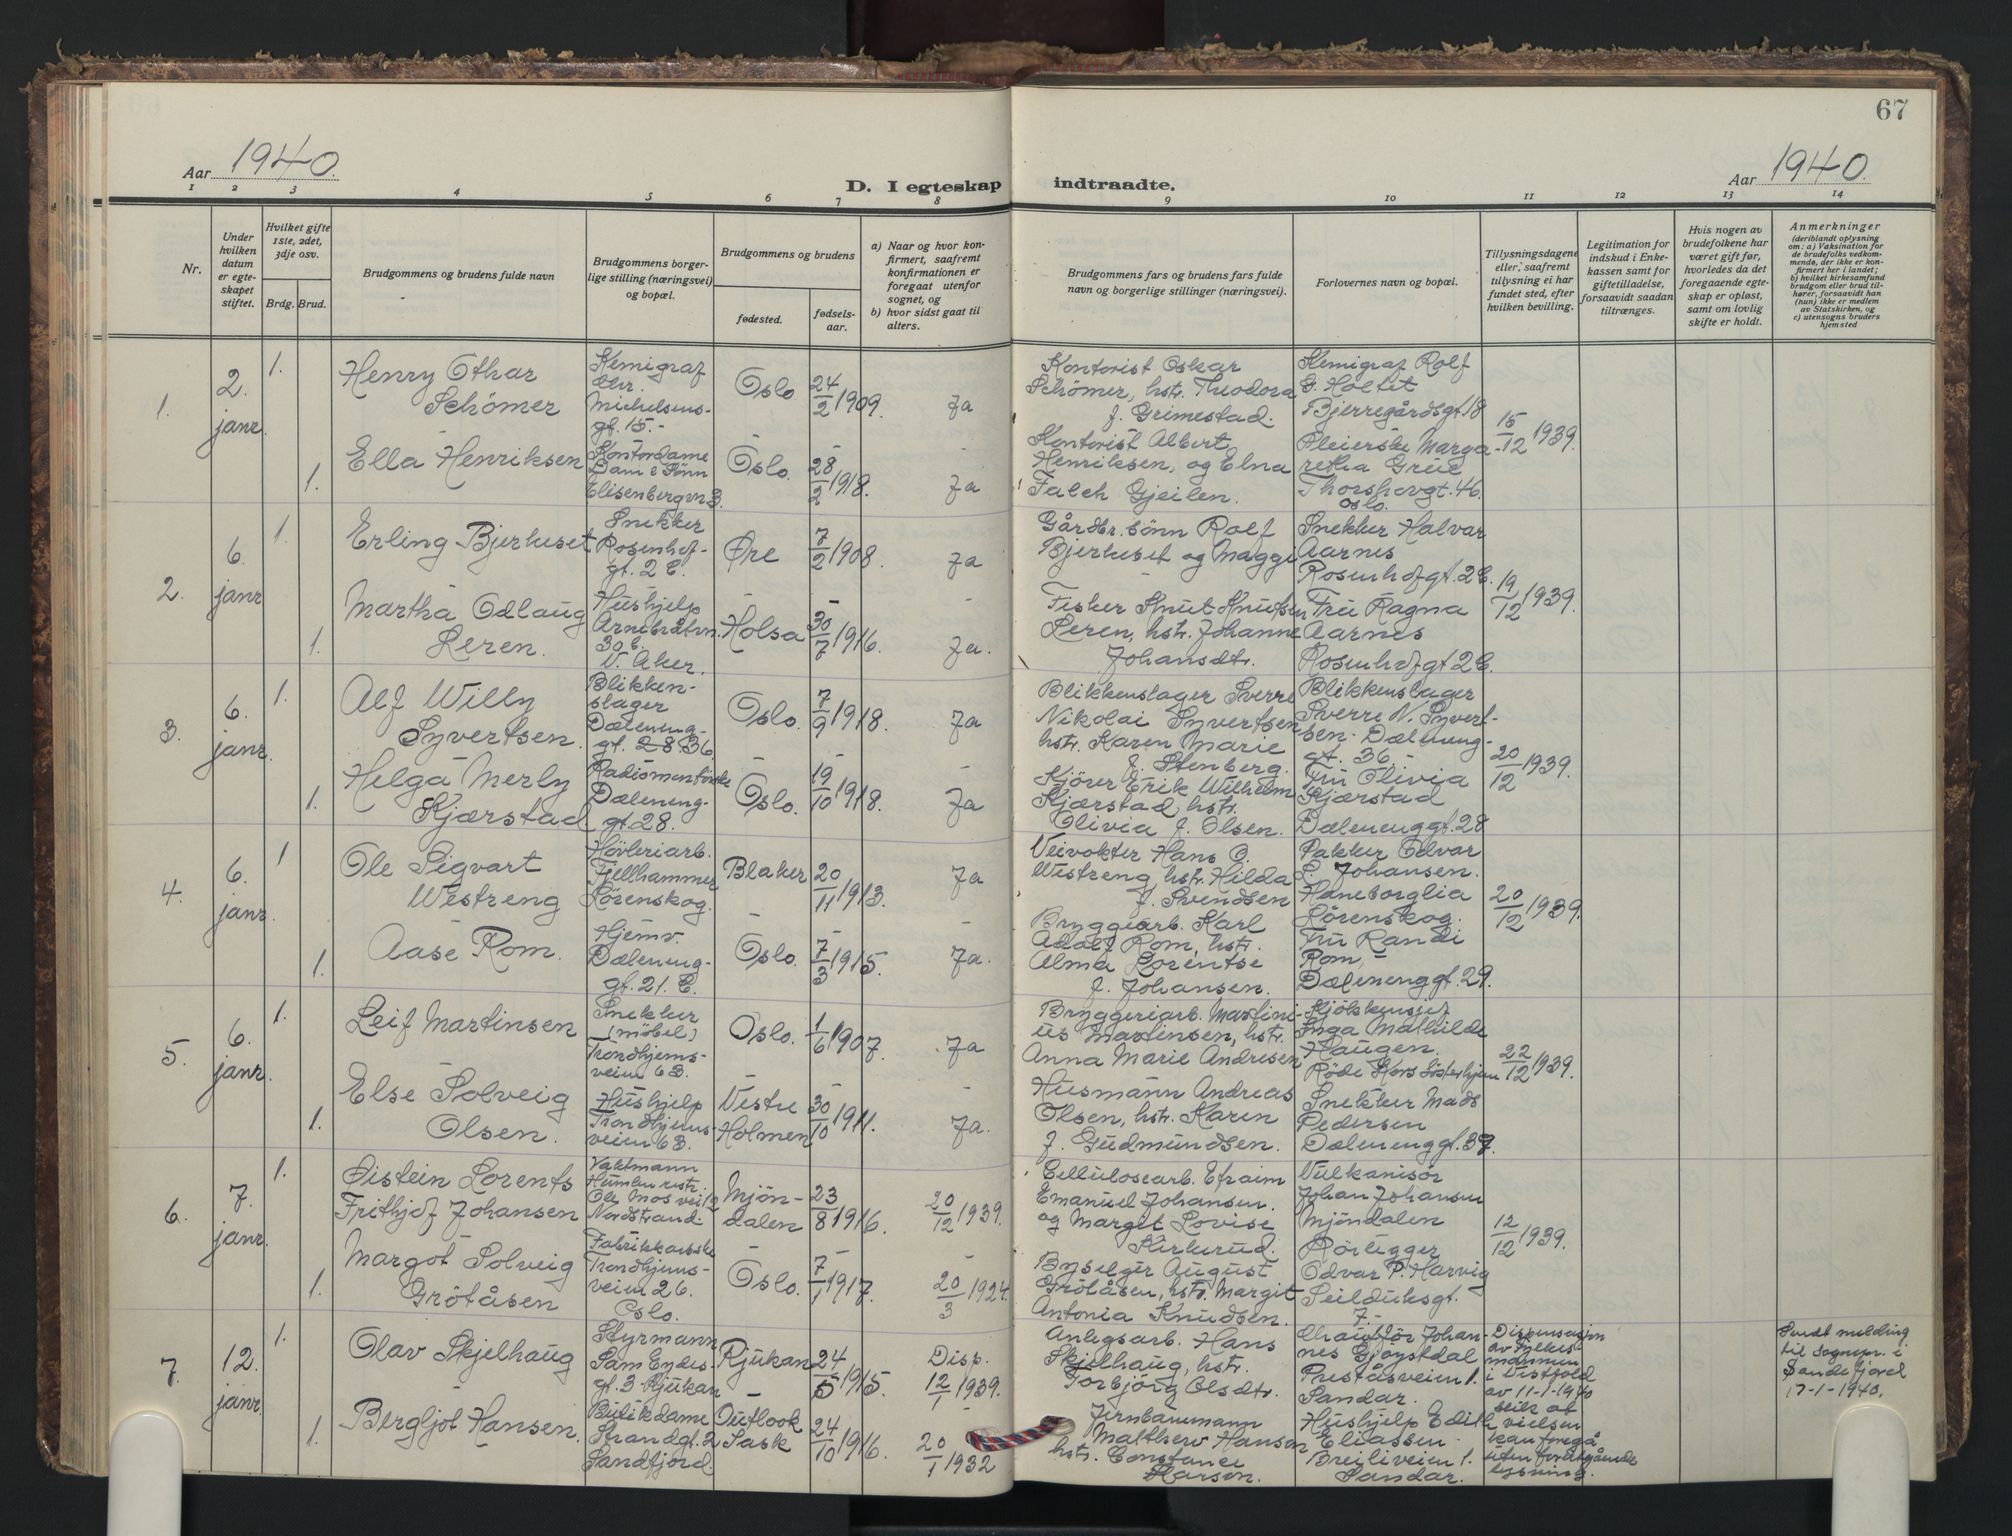 67
Aar 1940.
D. I egteskap indtraadte.
Aar 1940.
1 2 3 4 5 6 7 8 9 10 11 12 13 14
Nr.
Under hvilken datum er egteskapet stiftet.
Hvilket gifte 1ste, 2det, 3dje osv.
Brdg. Brud.
Brudgommens og brudens fulde navn
Brudgommens borgerlige stilling (næringsvei) og bopæl.
Brudgommens og brudens
fødested.
fødselsaar.
a) Naar og hvor konfirmert, saafremt konfirmationen er foregaat utenfor sognet, og
b) hvor sidst gaat til alters.
Brudgommens fars og brudens fars fulde navn og borgerlige stillinger (næringsvei).
Forlovernes navn og bopæl.
Tillysningsdagene eller, saafremt tillysning ei har fundet sted, efter hvilken bevilling.
Legitimation for indskud i Enkekassen samt for giftetilladelse, forsaavidt saadan tiltrænges.
Hvis nogen av brudefolkene har været gift før, hvorledes da det foregaaende egteskap er opløst, samt om lovlig skifte er holdt.
Anmerkninger
(deriblandt oplysning om: a) Vaksination for de brudefolks vedkommende, der ikke er konfirmert her i landet; b) hvilket kirkesamfund brudgom eller brud tilhører, forsaavidt han (hun) ikke er medlem av Statskirken, og c) utensogns bruders hjemsted
1.
2. janr.
1.
Henry Othar
Schömer
Kemigraf
Chr.
Michelsens-
gt. 15.-
Oslo
24/2 1909.
Ja
Kontorist Oskar
Schömer, hstr. Theodora
f. Grimestad.
Kemigraf Rolf
G. Holtet
Bjerregårdsgt. 18
15/12 1939.
1.
Ella Henriksen
Kontordame
Dam & Sønn
Elisenbergvn. 3.
Oslo.
28/2 1918.
Ja
Kontorist Albert
Henriksen, og Elna
Falch Gjeilen.
Pleierske Marga-
retha Grue
Thorshovgt. 46.
Oslo.
2.
6. janr
1.
Erling Bjerkeset
Snekker
Rosenhof-
gt. 2 C.
Øre
7/2 1908.
Ja
Gårdbr. sønn Rolf
Bjerkeset og Maggi
Snekker Halvar
Aarnes
Rosenhofgt. 2 C.
19/12 1939.
1.
Martha Odlaug
Leren.
Hushjelp
Arnebråtvn.
30 C.
V. Aker.
Holsa
30/7 1916.
Ja.
Fisker Knut Knudsen
Leren, hstr. Johanne
Johansdtr.
Fru Ragna
Aarnes
Rosenhofgt 2 C.
3.
6. janr.
1.
Alf Willy
Syvertsen.
Blikken-
slager
Dæleneng-
gt. 36
Oslo.
7/9 1918.
Ja
Blikkenslager Sverre
Nikolai Syvertsen
hstr. Karen Marie
f. Stenberg.
Blikkenslager
Sverre N. Syvert-
sen. Dæleneng-
gt. 36.
20/12 1939.
1.
Helga Merly
Kjærstad
Radiomontørske
Dæleneng-
gt. 28.
Oslo.
19/10 1918.
Ja
Kjörer Erik Wilhelm
Kjærstad, hstr.
Olivia f. Olsen.
Fru Olivia
Kjærstad
Dælenenggt. 28
4.
6. janr.
1
Ole Sigvart
Westreng
Høvleriarb.
Fjellhammer
Lørenskog.
Blaker
20/11 1913.
Ja
Veivokter Hans O.
Westreng, hstr. Hilda
f. Svendsen
Pakker Edvar
L. Johansen.
Haneborglia
Lørenskog.
20/12 1939.
1.
Aase Rom.
Hjemv.
Dæleneng-
gt. 21. C.
Oslo.
7/3 1915.
Ja.
Bryggiarb. Karl
Adolf Rom, hstr.
Alma Lorentse
f. Johansen.
Fru Randi
Rom
Dælenenggt. 29.
5.
6. janr.
1.
Leif Martinsen
Snekker
(møbel)
Trondhjems-
veien 63.
Oslo.
1/6 1907.
Ja
Bryggeriarb. Martini-
us Martinsen, hstr.
Anna Marie Andresen
Kjökkensjef
Inga Mathilde
Haugen.
Røde Kors Søsterhjem
22/12 1939.
1.
Else Solveig
Olsen.
Hushjelp
Trondhjems-
veien 63.
Vestre
Holmen
30/10 1911.
Ja.
Husmann Andreas
Olsen, hstr. Karen
f. Gudmundsen.
Snekker Mads
Pedersen
Dælenenggt. 37.
6.
7. janr.
1.
Øistein Lorents
Frithjof Johansen
Vaktmann
Ole Mos vei 12
Nordstrand.
Mjön-
dalen
23/8 1916.
20/12 1939.
Cellulosearb. Efraim
Emanuel Johansen
og Margit Lovise
Kirkerud.
Vulkanisör
Johan Johansen
Mjöndalen
12/12 1939.
1.
Margot Solveig
Grötåsen
Fabrikkarbske
Trondhjems-
veien 26.
Oslo.
Oslo.
7/1 1917.
20/3 1924.
August
Grötåsen, hstr. Margit
Antonia Knudsen.
Rörlegger
Odvar P. Harvig
Seilduksgt.
7.-
7.
12. janr.
1.
Olav Skjelhaug
Styrmann
Sam Eydes-
gt. 3 Rjukan
Rjukan
24/5 1915.
Disp.
12/1 1939.
Anlegsarb. Hans
Skjelhaug, hstr.
Torbjörg Olsdtr.
Chauffør Johan-
nes Gjøystdal
Preståsveien 1.
Sandar.
Dispensasjon
av Fylkes-
mannen
i Vestfold
av 11-1-1940
slik at
vielsen
kan foregå
uten foregående
lysning.
Sendt melding
til sognepr. i
Sandefjord
17-1-1940.
1.
Bergljot Hansen.
Butikdame
Strandgt. 2
Sandfjord.
Outlook
Sask
24/10 1916.
20/1 1932
Jernbanemann
Mathew Hansen
hstr. Constance
Hansen.
Hushjelp Edith
Eliassen
Breiliveien 1.
Sandar.